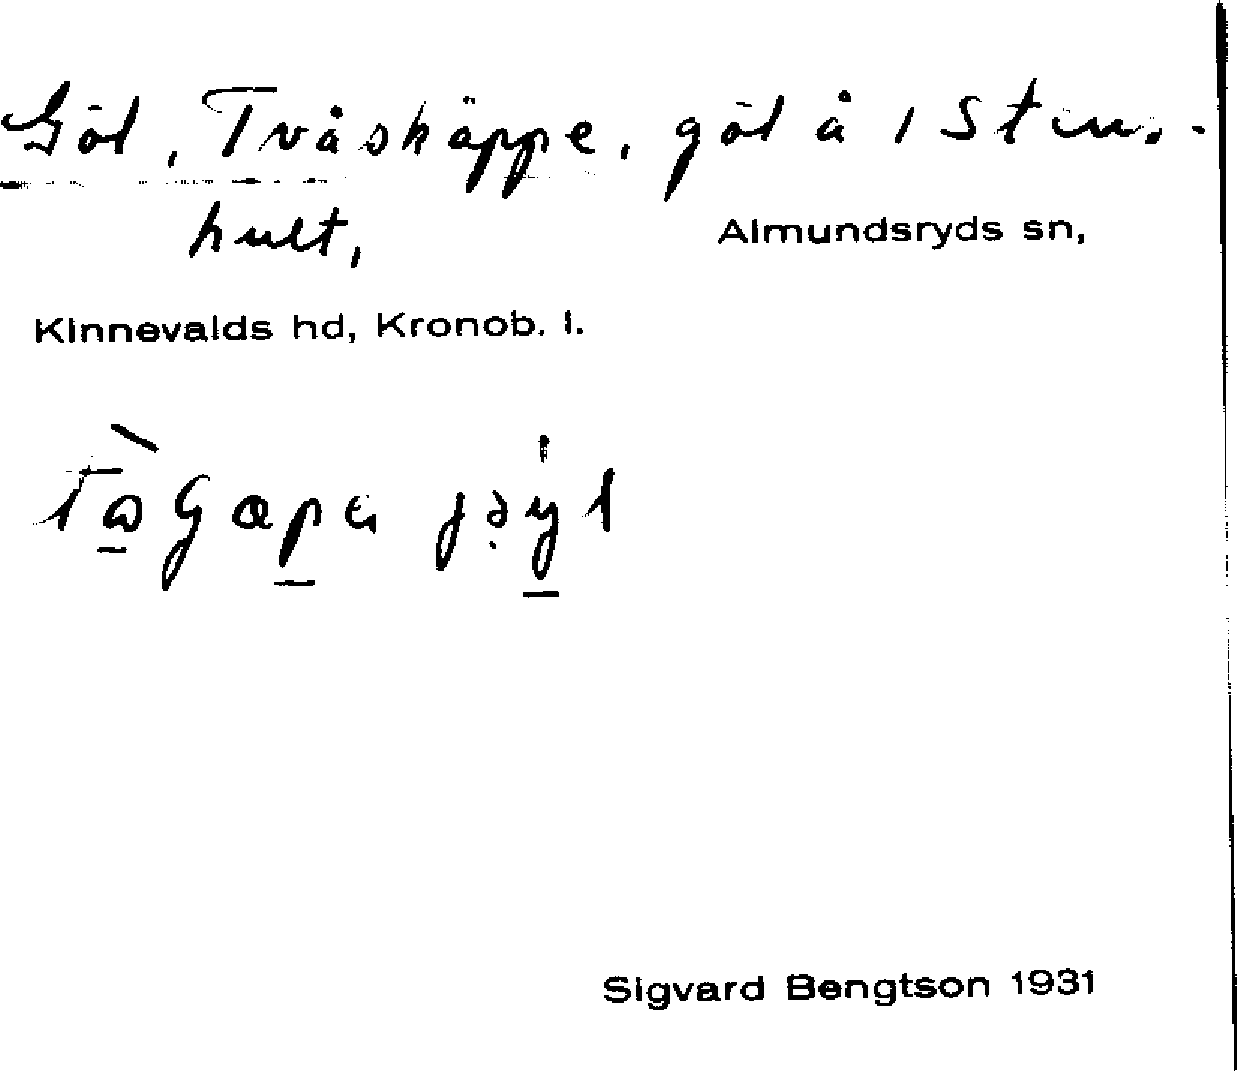 Göl, Tvåskäppe, göl å 1 Stens-
hult,
Almundsryds sn,
Kinnevalds hd, Kronob. l.
Sigvard Bengtson 1931